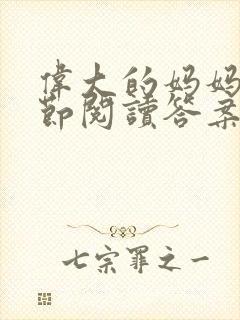 偉大的妈妈
節閱讀答案
七宗罪之一